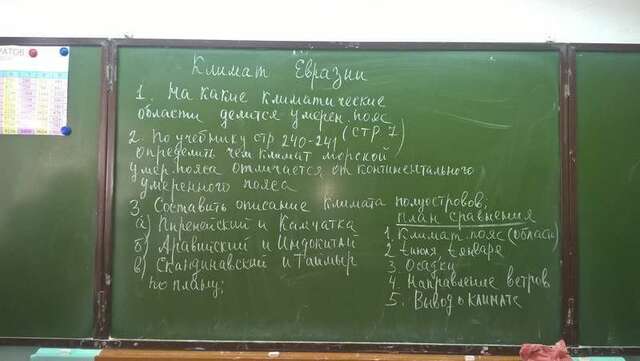 РАТОВ
Климат Евразии
1. На какие климатические
области делится умерен. пояс
(стр. 7)
2. По учебнику стр 240-241
определить чем климат морской
умер. пояса отличается от континентального
умеренного пояса
3. Составить описание климата полуостровов;
а) Пиренейский и Камчатка
б) Аравийский и Индокитай
в) Скандинавский и Таймыр
по плану;
план сравнения
1. Климат. пояс (области)
2. t июля t январе
3. Осадки
4. Направление ветров
5. Вывод о климате